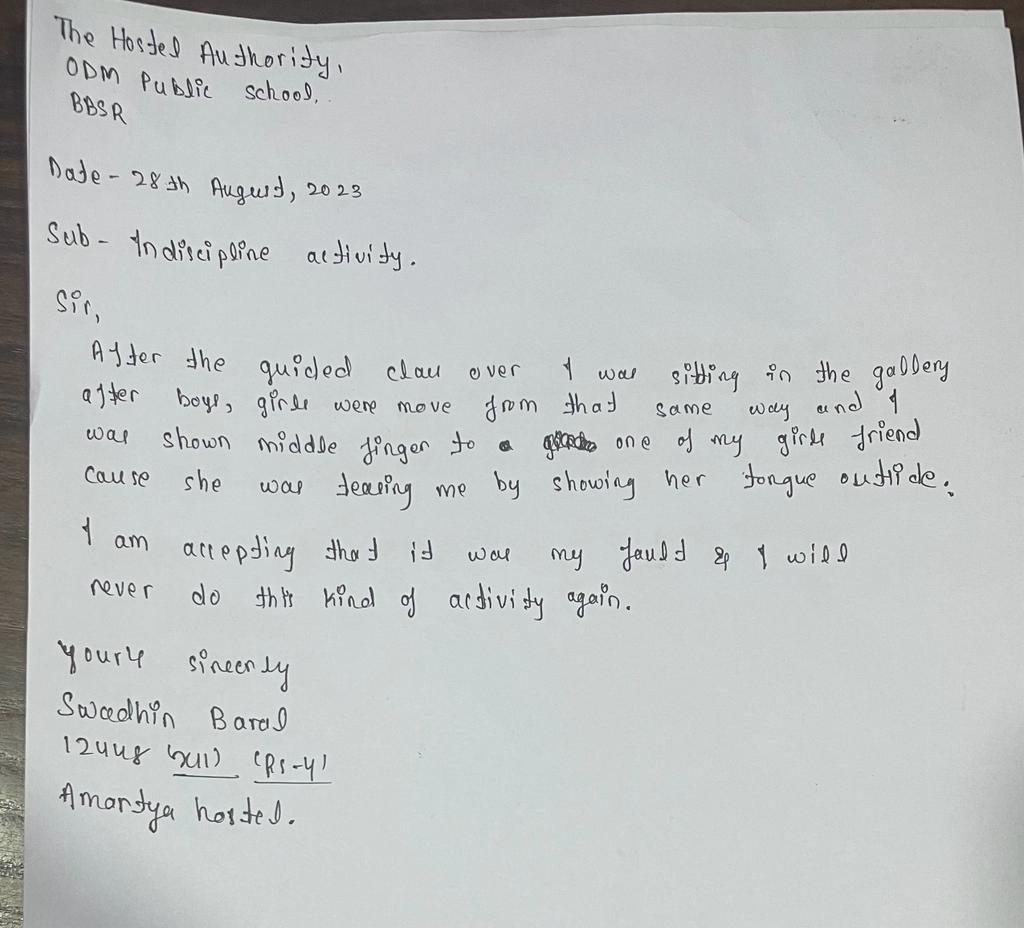 The Hostel Authority,
ODM Public school,
BBSR
Date - 28th August, 2023
Sub - Indiscipline activity.
Sir,
After the guided class over I was sitting in the gallery
after boys, girls were move from that same way and I
was shown middle finger to a one of my girls friend
cause she was teasing me by showing her tongue outside.
I am accepting that it was my fault & I will
never do this kind of activity again.
yours sincerly
Swadhin Baral
12448 (XII) (RS-4)
Amartya hostel.